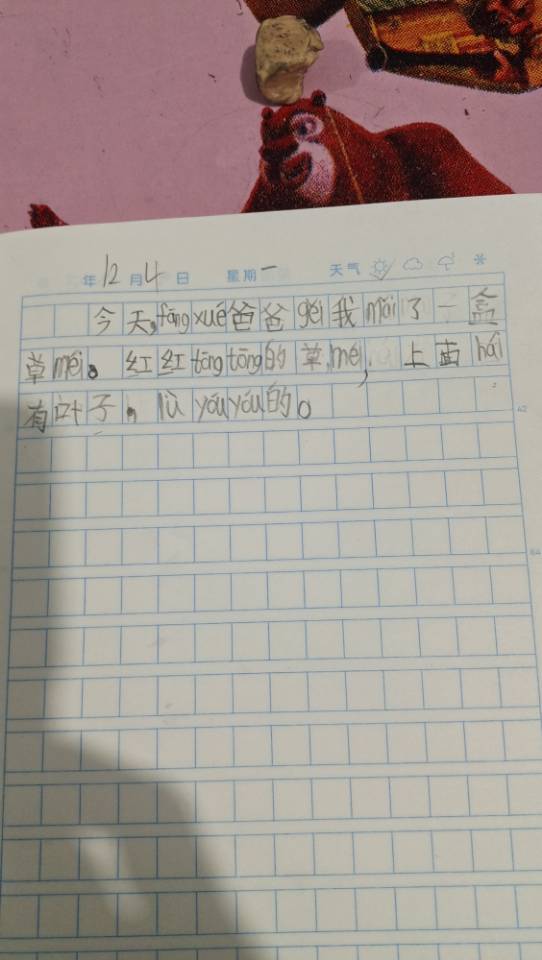 年12月4日 星期一 天气
今天,fāng xué爸爸gěi我mǎi了一盒
草méi。红红tōng tōng的草méi,上面hái
有叶子,lǜ yóu yóu的。
42
84